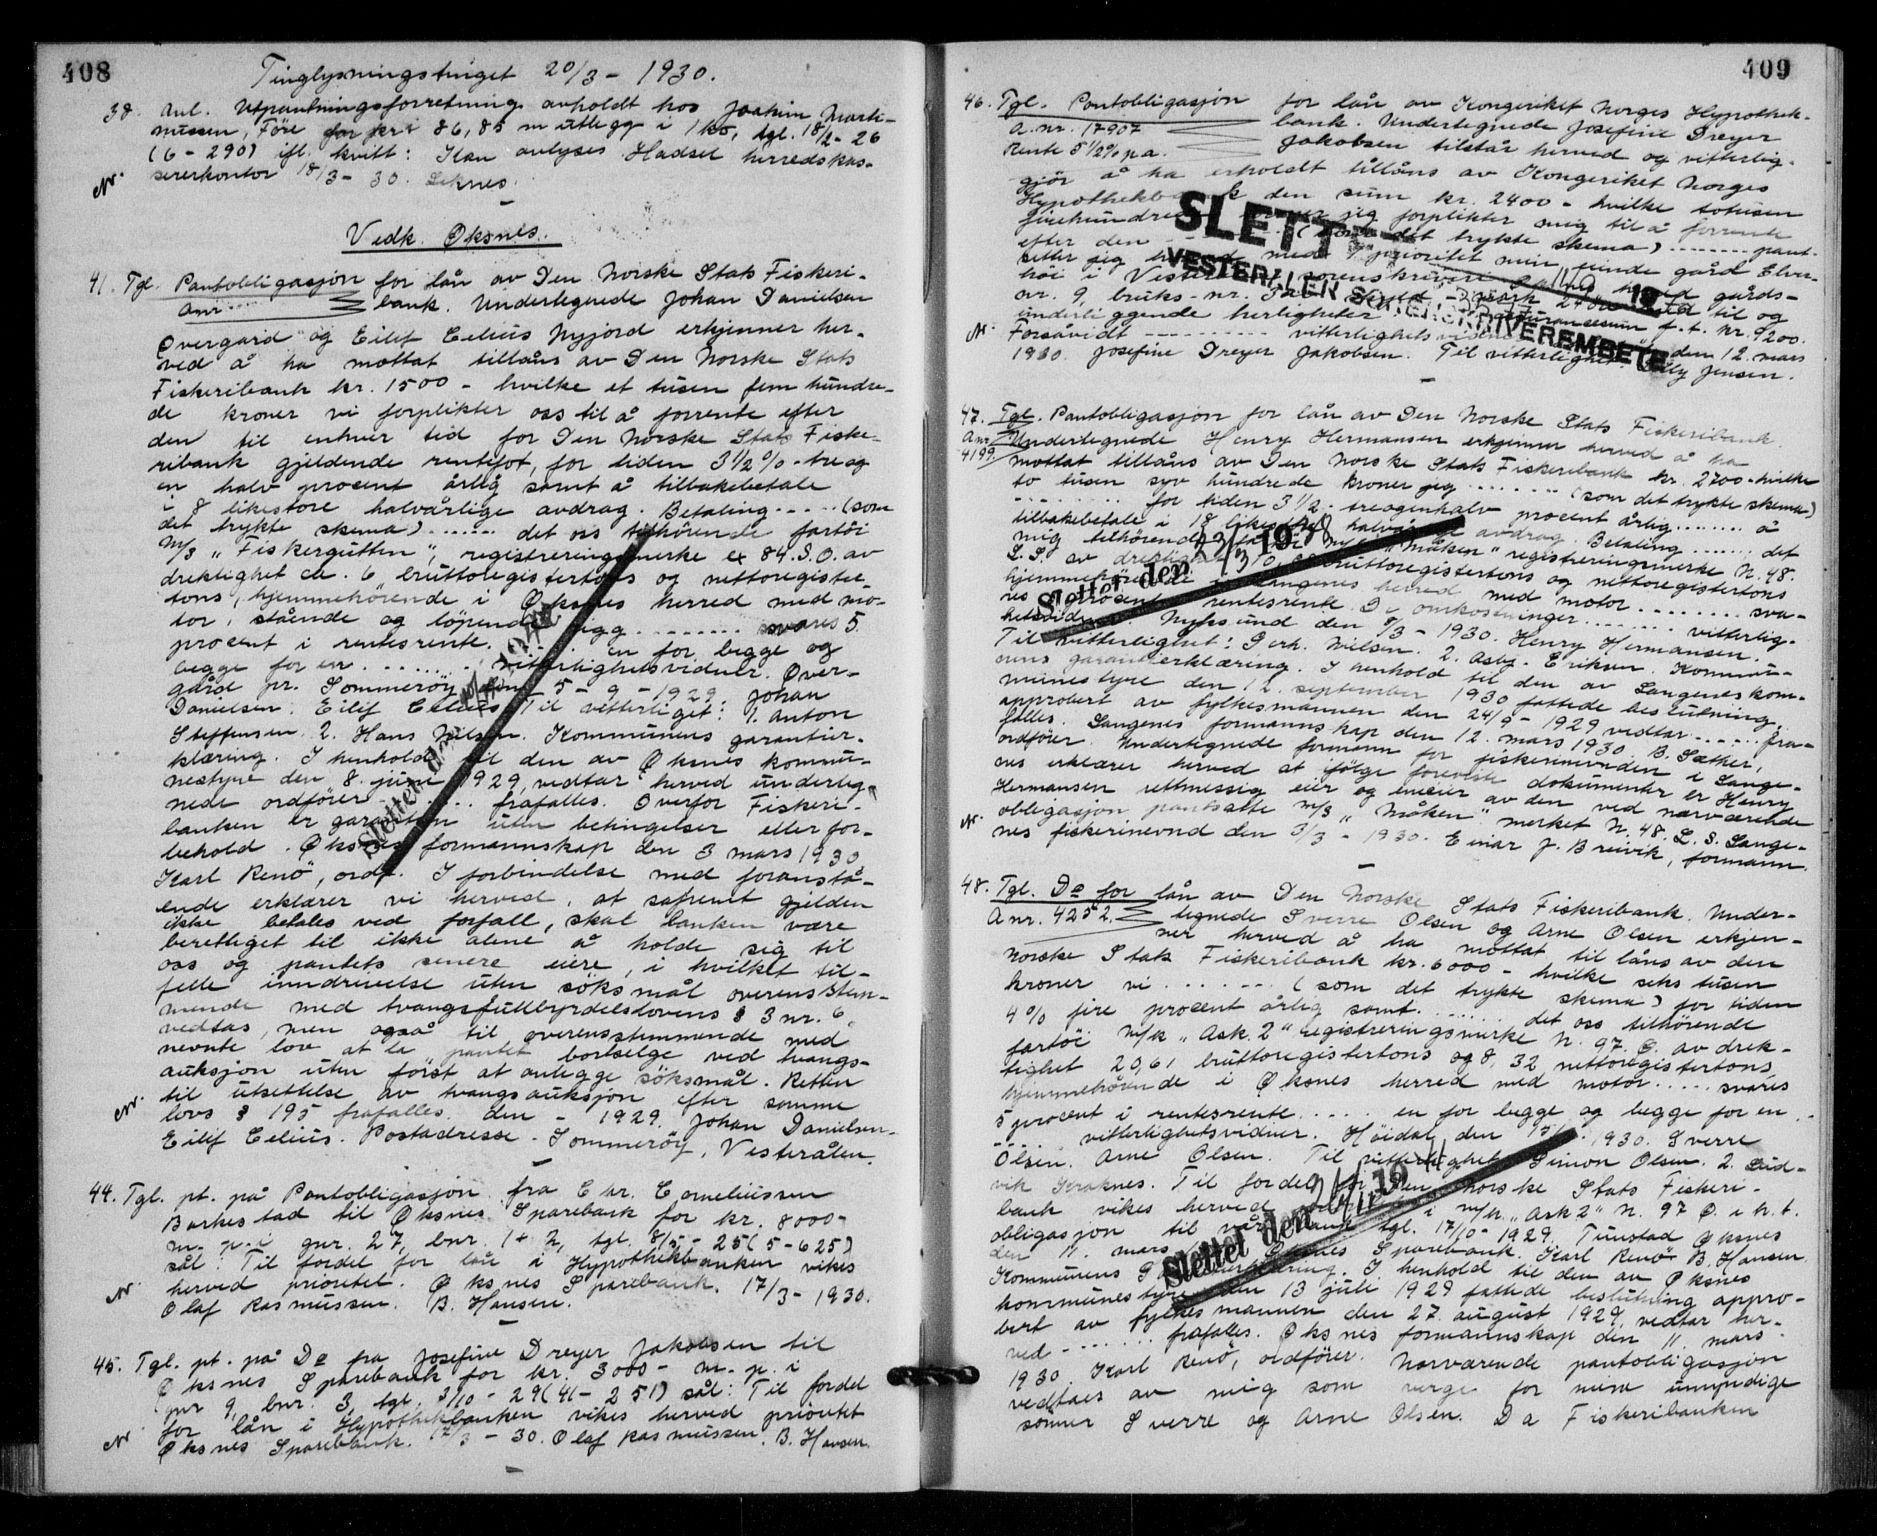 408
Tinglysningstinget 20/3 - 1930.
38. Anl. Utpantningsforretning avholdt hos Joakim Marti-
nussen, Före for kr. 86,85 m utlegg i 1 ko, tgl. 18/2 - 26
(6 - 290) ifl. kvitt: Kan avlyses Hadsel herredskas-
sererkontor 18/3 - 30. Seknes.
Vedk. Øksnes.
41. Tgl. Pantobligasjon for lån av Den Norske Stats Fiskeri-
Anr. .... bank. Undertegnede Johan Danielsen
Overgård og Eilif Celius Nyjord erkjenner her-
ved å ha mottat tillåns av Den Norske Stats
Fiskeribank kr. 1500 - hvilke et tusen fem hundre-
de kroner vi forplikter oss til å forrente efter
den til enhver tid for Den Norske Stats Fiske-
ribank gjeldende rentefot, for tiden 3 1/2 % - tre og
en halv procent årlig samt å tilbakebetale
i 8 likestore halvårlige avdrag. Betaling .... (som
det trykte skema) ...... det oss tilhörende fartöi
m/s "Fiskergutten", registreringsmerke 84. S.O. av
drektighet ca. 6 bruttoregistertons og nettoregister-
tons, hjemmehörende i Øksnes herred med mo-
tor, stående og löpende rigg ........ svares 5
procent i rentesrente. .... en for begge og
begge for en ....... vitterlighetsvidner. Over-
gård pr. Sommeröy den 5 - 9 - 1929 Johan
Danielsen. Eilif Celius. Til vitterliget: 1. Anton
Steffensen 2. Hans Nilsen. Kommunens garantier-
klæring. I henhold til den av Øksnes kommu-
nestyre den 8. juni 1929, vedtar herved underteg-
nede ordförer ...... frafalles. Overfor Fiskeri-
banken er garantien uten betingelser eller for-
behold. Øksnes formannskap den 3 mars 1930
Karl Renö, ordf. I forbindelse med foranstå-
ende erklærer vi herved, at såfremt gjelden
ikke betales ved forfall, skal banken være
berettiget til ikke alene å holde sig til
oss og pantets senere eiere, i hvilket til-
felle inndrivelse uten söksmål overensstem-
mende med tvangsfullbyrdelseslovens § 3 nr. 6
vedtas, men også til overensstemmende med
nevnte lov at la pantet bortselge ved tvangs-
auksjon uten först at anlegge söksmål. Retten
til utsettelse av tvangsauksjon efter samme
lovs § 195 frafalles. den - 1929. Johan Danielsen-
Eilif Celius. Postadresse - Sommeröy, Vesterålen.
Slettet den 19
44. Tgl. pt. på Pantobligasjon fra Chr. Corneliussen
Barkestad til Øksnes Sparebank for kr. 8000-
m. p. i gnr. 27, bnr. 1 + 2, tgl. 8/5 - 25 (5 - 625)
sål: Til fordel for lån i Hypothekbanken vikes
herved prioritet. Øksnes Sparebank. 17/3 - 1930.
Olaf Rasmussen. B. Hansen.
45. Tgl. pt. på Do fra Josefine Dreyer Jakobsen til
Øksnes Sparebank for kr. 3000 - m. p. i
gnr 9, bnr. 3, tgl. 3/10 - 29 (41 - 251) sål: Til fordel
for lån i Hypothekbanken vikes herved prioritet
Øksnes Sparebank. 17/3 - 30. Olaf Rasmussen. B. Hansen.
409
46. Tgl. Pantobligasjon for lån av Kongeriket Norges Hypothek-
A. nr. 17907 bank. Undertegnede Josefine Dreyer
Rente 5 1/2 % pa. Jakobsen tilstår herved og vitterlig-
gjör å ha erholdt tillåns av Kongeriket Norges
Hypothekbank den sum kr. 2400 - hvilke totusen
firehundre jeg forplikter mig til å forrente
efter den (som det trykte skema) ........ pant-
setter jeg med 1 prioritet min eiende gård Elve-
höi i Vesterålen sorenskriveri herred gårds-
nr. 9, bruks-nr. til og
underliggende herligheter f. t. kr. 9200.
Forsåvidt ........ vitterlighetsvidner den 12. mars
1930. Josefine Dreyer Jakobsen. Til vitterlighet: Jensen.
SLETTET
VESTERÅLEN SORENSKRIVEREMBETE
47. Tgl. Pantobligasjon for lån av Den Norske Stats Fiskeribank
Anr. Undertegnede Henry Hermansen erkjenner herved å ha
4199 mottat tillåns av Den Norske Stats Fiskeribank kr. 2700 - hvilke
to tusen syv hundrede kroner jeg ........ (som det trykte skema)
........ for tiden 3 1/2 - treogenhalv procent årlig ........ å
tilbakebetale i 18 likestore halvårlige avdrag. Betaling ....... det
mig tilhörende fartöi m/s "Måken" registreringsmerke N. 48.
L. S. av drektighet bruttoregistertons og nettoregistertons
hjemmehörende i Langenes herred med motor ........ sva-
res procent rentesrente. De omkostninger ........ vitterlig-
hetsvidner. Nyksund den 5/3 - 1930. Henry Hermansen.
Til vitterlighet: Nielsen. 2. Asbj. Eriksen. Kommu-
nens garantierklæring. I henhold til den av Langenes kom-
munestyre den 12. september 1930 fattede beslutning,
approbert av fylkesmannen den 24/9 - 1929 vedtar ...... fra-
falles. Langenes formannskap den 12. mars 1930. B. Sæther,
ordförer. Undertegnede formann for fiskerinevnden i Lange-
nes erklærer herved at ifölge foreviste dokumenter er Henry
Hermansen rettmessig eier og eneeier av den ved nærværende
obligasjon pantsatte m/s "Måken" merket N. 48. L. S. Lange-
nes fiskerinevnd den 3/3 - 1930. Einar J. Breivik, formann.
Slettet den 19
48. Tgl. Do for lån av Den Norske Stats Fiskeribank. Under-
A nr. 4252. tegnede Sverre Olsen og Arne Olsen erkjen-
ner herved å ha mottat til låns av den
Norske Stats Fiskeribank kr. 6000 - hvilke seks tusen
kroner vi ....... (som det trykte skema) for tiden
4 % fire procent årlig samt ...... det oss tilhörende
fartöi m/k "Ask. 2" registreringsmerke N. 97. Ø. av drek-
tighet 20,61 bruttoregistertons og 8,32 nettoregistertons,
hjemmehörende i Øksnes herred med motor ..... svares
5 procent i rentesrente ..... en for begge og begge for en
.... vitterlighetsvidner. Höidal den 1930. Sverre
Olsen. Arne Olsen. Til vitterlighet Simon Olsen. 2. Lud-
vik Kraknes. Til fordel for Den Norske Stats Fiskeri-
bank vikes herved i m/k. "Ask 2" N. 97 Ø. i h. t.
obligasjon til vår bank tgl. 17/10 - 1929. Tunstad Øksnes
den 11. mars Øksnes Sparebank. Karl Renö B. Hansen.
Kommunens Garantierklæring. I henhold til den av Øksnes
kommunestyre den 13 juli 1929 fattede beslutning appro-
bert av fylkesmannen den 27. august 1929, vedtar her-
ved ...... frafalles. Øksnes formannskap den 11. mars
1930. Karl Renö, ordförer. Nærværende pantobligasjon
vedtaes av mig som verge for mine umyndige
sönner Sverre og Arne Olsen. Da Fiskeribanken
Slettet den 19